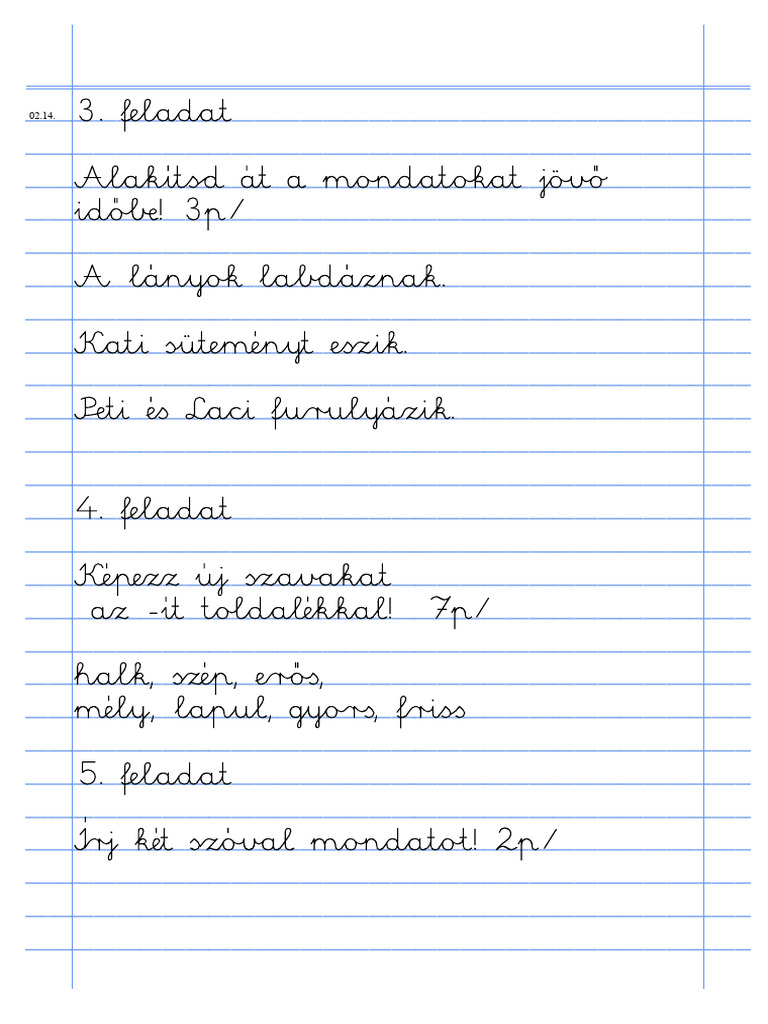 02.14. 3. feladat
Alakítsd át a mondatokat jövő
időbe! 3p/
A lányok labdáznak.
Kati süteményt eszik.
Peti és Laci furulyázik.
4. feladat
Képezz új szavakat
az -ít toldalékkal! 7p/
halk, szép, erős,
mély, lapul, gyors, friss
5. feladat
Írj két szóval mondatot! 2p/